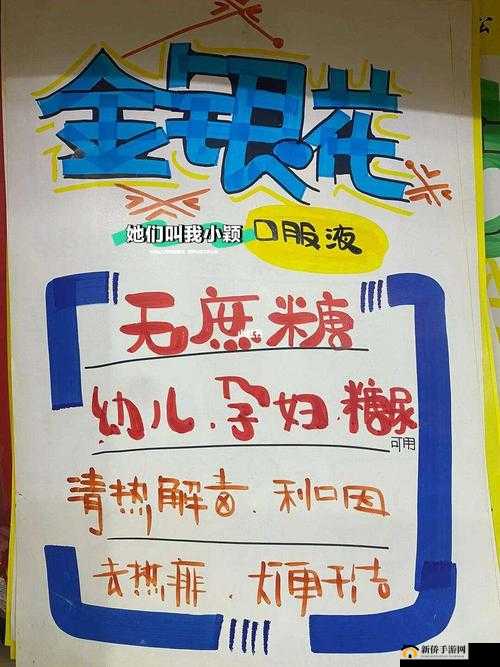 金银花
她们叫我小颖
口服液
无蔗糖
幼儿.孕妇.糖尿
可用
清热解毒.利口因
去热痱.大便干洁
新侨手游网